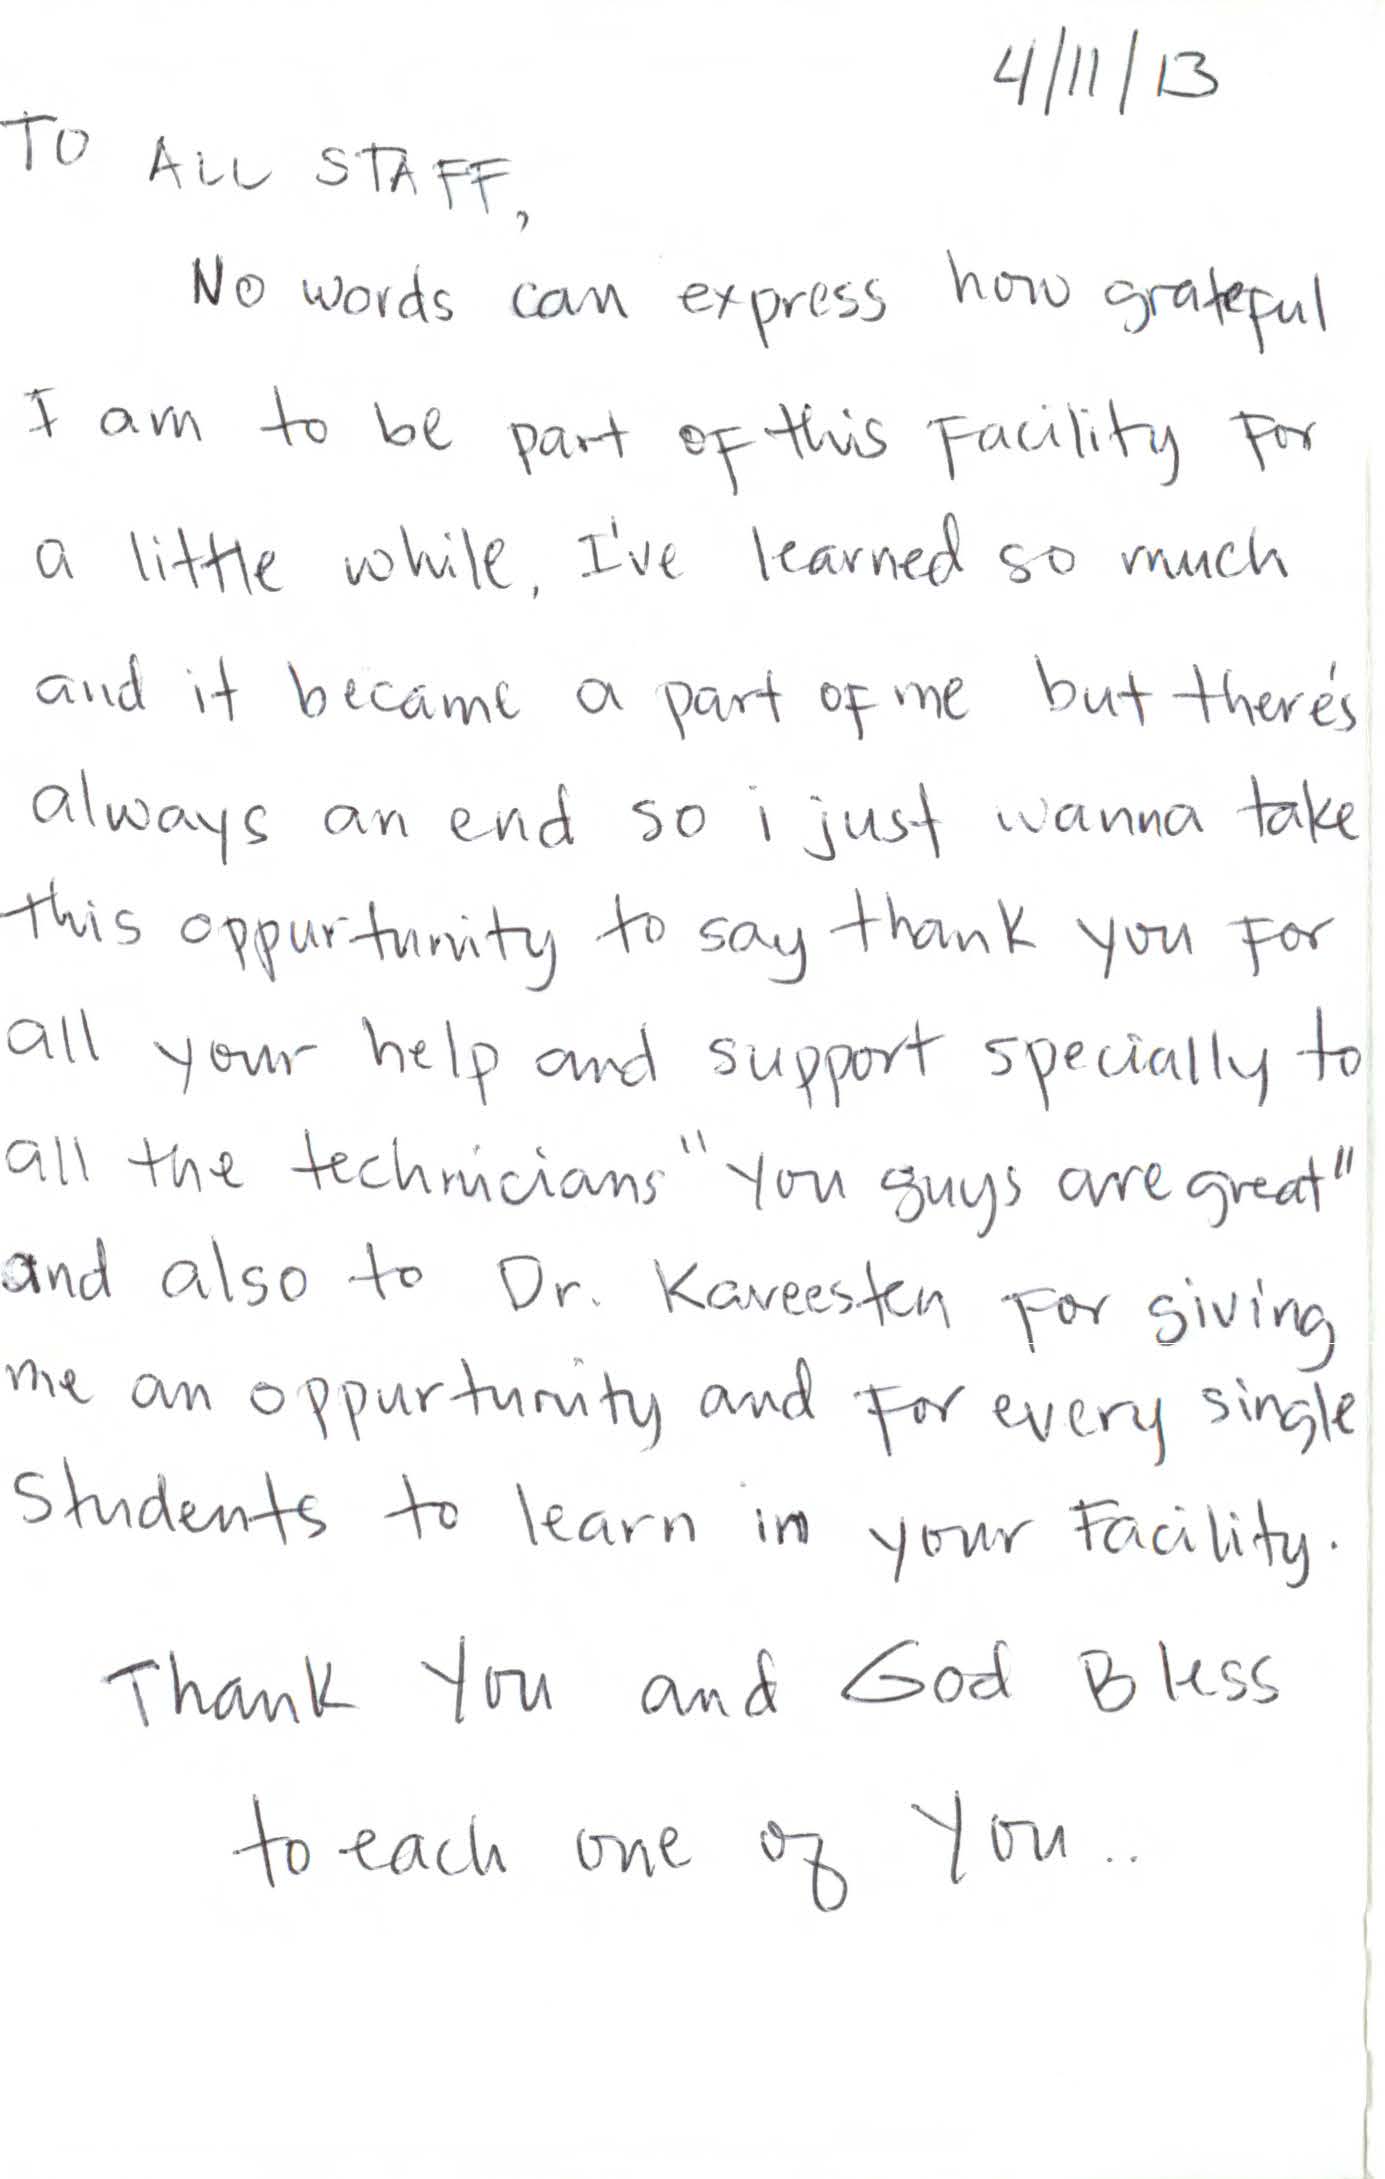 4/11/13
TO ALL STAFF,
No words can express how grateful
I am to be part of this Facility For
a little while, I've learned so much
and it became a part of me but there's
always an end so i just wanna take
this oppurtunity to say thank you For
all your help and support specially to
all the technicians "you guys are great"
and also to Dr. Kaveesten For giving
me an oppurtunity and For every single
students to learn in your Facility.
Thank You and God Bless
to each one of You..